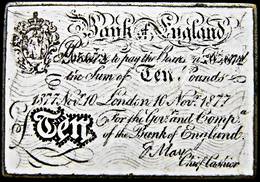 Bank of England
to pay the Bearer
the Sum of Ten Pounds
1877 Nov. 10 London 10 Nov. 1877
For the Gov. and Comp.a
Ten
of the Bank of England
May
Chief Cashier